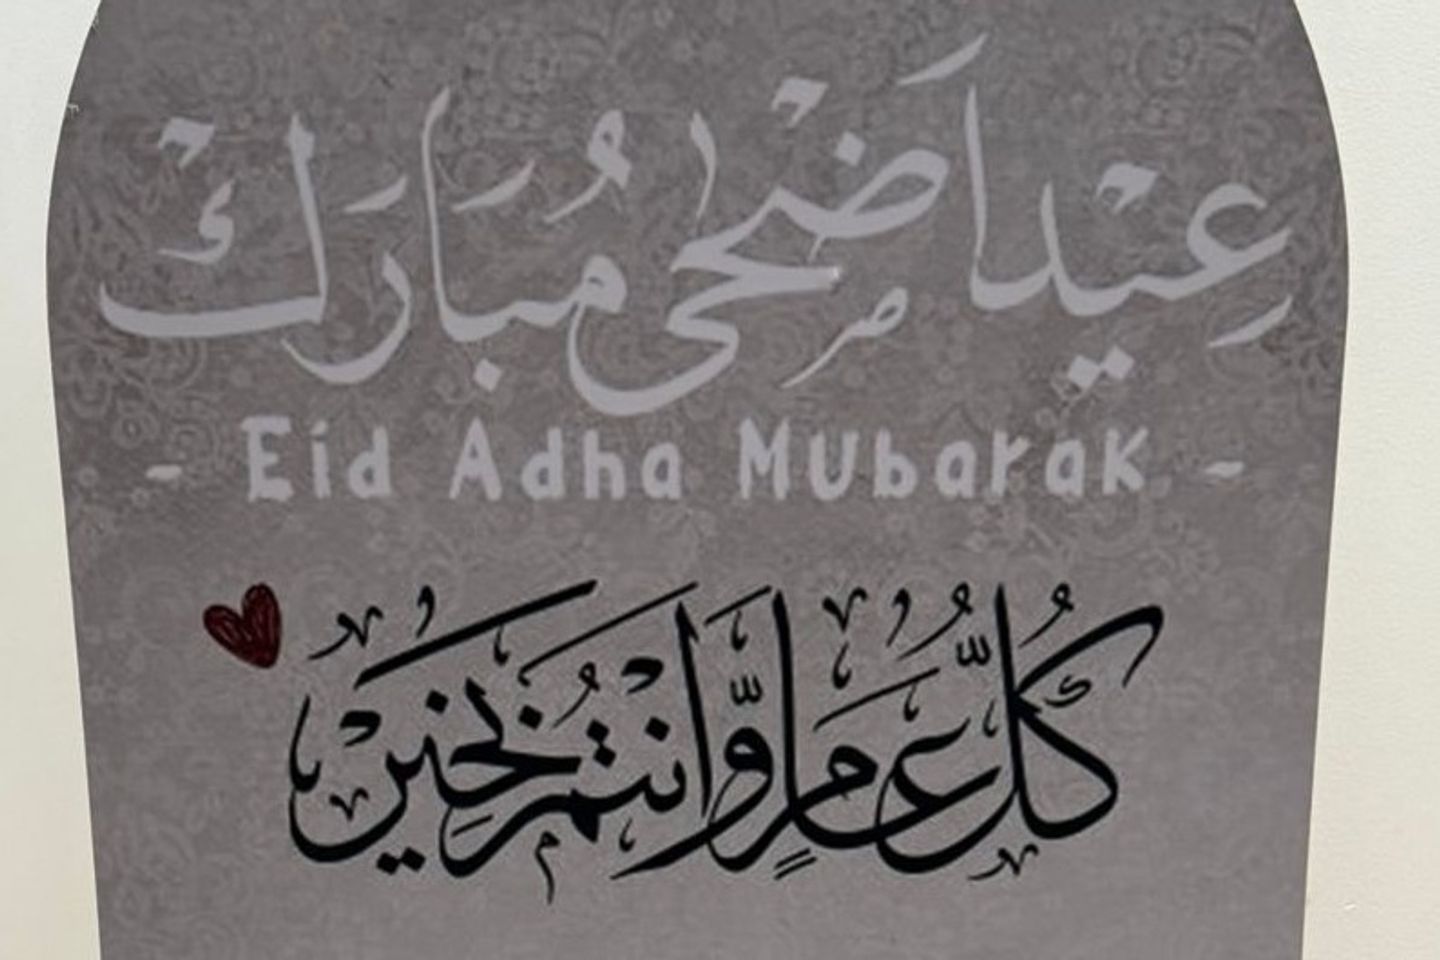 عِيْد اَضْحىٰ مُبَارَكْ
- Eid Adha Mubarak -
كُلُّ عَامٍ وَّاَنْتُمْ بِخَيْر